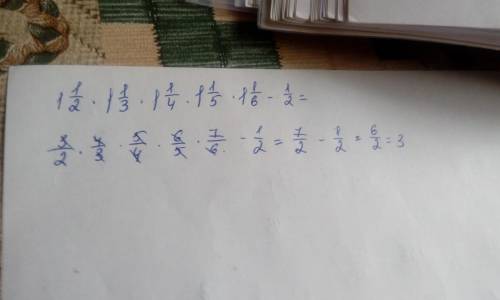 1 1/2 · 1 1/3 · 1 1/4 · 1 1/5 · 1 1/6 - 1/2 =
3/2 · 4/3 · 5/4 · 6/5 · 7/6 - 1/2 = 7/2 - 1/2 = 6/2 = 3